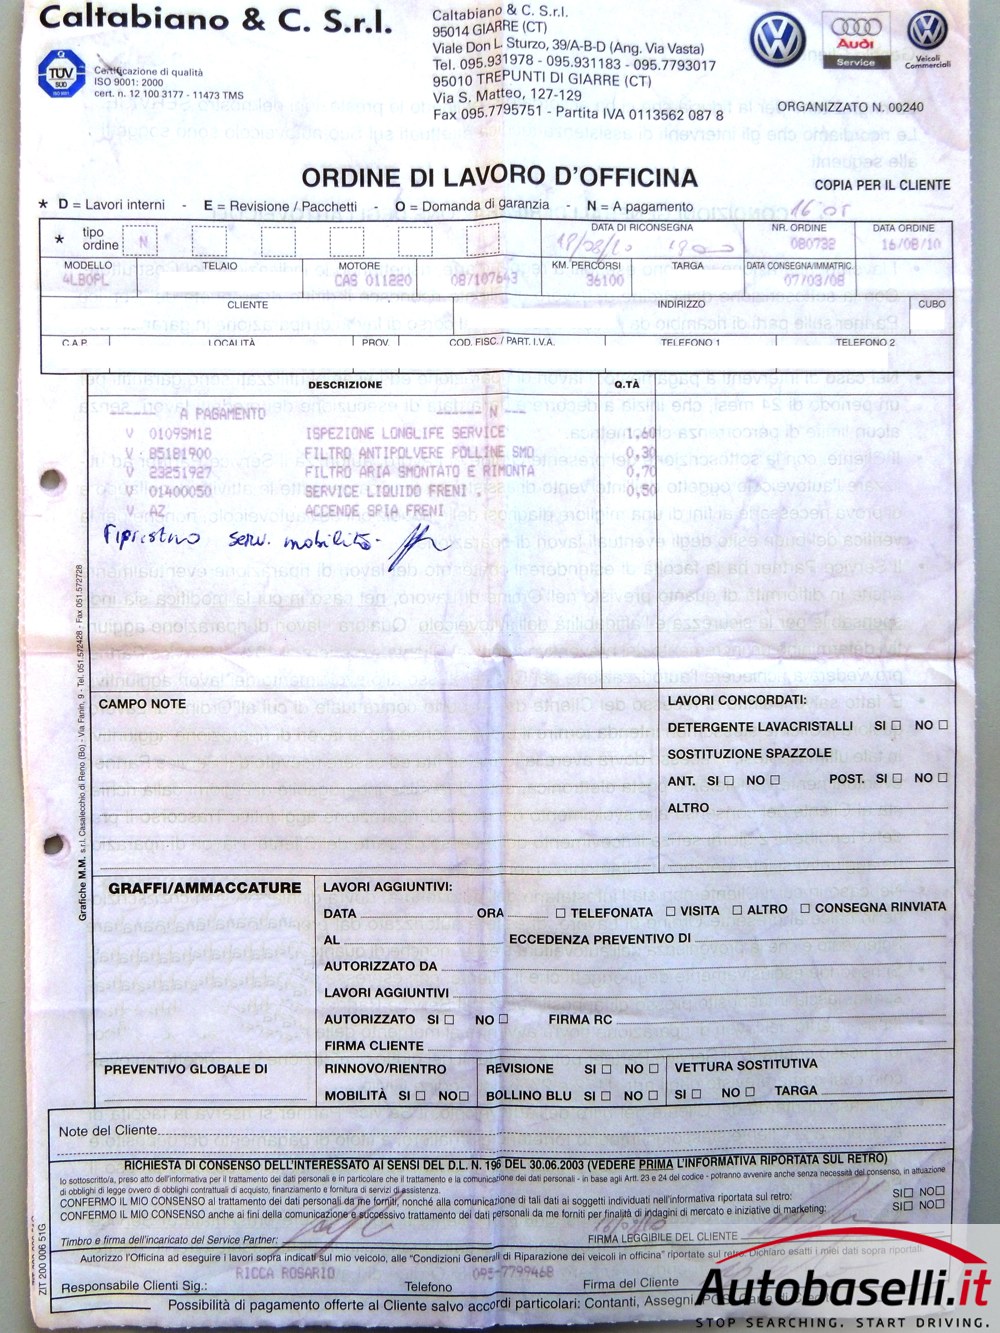 Caltabiano & C. S.r.l.
Caltabiano & C. S.r.l.
95014 GIARRE (CT)
Viale Don L. Sturzo, 39/A-B-D (Ang. Via Vasta)
Tel. 095.931978 - 095.931183 - 095.7793017
95010 TREPUNTI DI GIARRE (CT)
Via S. Matteo, 127-129
Fax 095.7795751 - Partita IVA 0113562 087 8
TÜV
SÜD
Certificazione di qualità
ISO 9001: 2000
cert. n. 12 100 3177 - 11473 TMS
Audi
Service
Veicoli
Commerciali
ORGANIZZATO N. 00240
ORDINE DI LAVORO D'OFFICINA
COPIA PER IL CLIENTE
* D = Lavori interni - E = Revisione / Pacchetti - O = Domanda di garanzia - N = A pagamento
16.05
* tipo ordine N
DATA DI RICONSEGNA
18/08/10
NR. ORDINE
080732
DATA ORDINE
16/08/10
MODELLO
4LB0PL
TELAIO
MOTORE
CAS 011820
08/107643
KM. PERCORSI
36100
TARGA
DATA CONSEGNA/IMMATRIC.
07/03/08
CLIENTE
INDIRIZZO
CUBO
C.A.P.
LOCALITÀ
PROV.
COD. FISC./ PART. I.V.A.
TELEFONO 1
TELEFONO 2
DESCRIZIONE
Q.TÀ
----- A PAGAMENTO ----- N --
V 0109SM12 ISPEZIONE LONGLIFE SERVICE 1,60
V 85181900 FILTRO ANTIPOLVERE POLLINE SMO 0,30
V 23251927 FILTRO ARIA SMONTATO E RIMONTA 0,70
V 01400050 SERVICE LIQUIDO FRENI 0,50
V AZ ACCENDE SPIA FRENI
Ripristino serv. mobilità -
Grafiche M.M. s.r.l. Casalecchio di Reno (Bo) - Via Fanin, 9 - Tel. 051.572428 - Fax 051.572728
CAMPO NOTE
LAVORI CONCORDATI:
DETERGENTE LAVACRISTALLI SI □ NO □
SOSTITUZIONE SPAZZOLE
ANT. SI □ NO □ POST. SI □ NO □
ALTRO
GRAFFI/AMMACCATURE
LAVORI AGGIUNTIVI:
DATA ORA □ TELEFONATA □ VISITA □ ALTRO □ CONSEGNA RINVIATA
AL ECCEDENZA PREVENTIVO DI
AUTORIZZATO DA
LAVORI AGGIUNTIVI
AUTORIZZATO SI □ NO □ FIRMA RC
FIRMA CLIENTE
PREVENTIVO GLOBALE DI
RINNOVO/RIENTRO
MOBILITÀ SI □ NO □
REVISIONE SI □ NO □
BOLLINO BLU SI □ NO □
VETTURA SOSTITUTIVA
SI □ NO □ TARGA
Note del Cliente
RICHIESTA DI CONSENSO DELL'INTERESSATO AI SENSI DEL D.L. N. 196 DEL 30.06.2003 (VEDERE PRIMA L'INFORMATIVA RIPORTATA SUL RETRO)
Io sottoscritto/a, preso atto dell'informativa per il trattamento dei dati personali e in particolare che il trattamento e la comunicazione dei dati personali - in base agli Artt. 23 e 24 del codice - potranno avvenire anche senza necessità del consenso, in attuazione
di obblighi di legge ovvero di obblighi contrattuali di acquisto, finanziamento e fornitura di servizi di assistenza.
CONFERMO IL MIO CONSENSO al trattamento dei dati personali da me forniti, nonché alla comunicazione di tali dati ai soggetti individuati nell'informativa riportata sul retro: SI □ NO □
CONFERMO IL MIO CONSENSO anche ai fini della comunicazione e successivo trattamento dei dati personali da me forniti per finalità di indagini di mercato e iniziative di marketing: SI □ NO □
Timbro e firma dell'incaricato del Service Partner:
16/08/10
FIRMA LEGGIBILE DEL CLIENTE
Autorizzo l'Officina ad eseguire i lavori sopra indicati sul mio veicolo, alle "Condizioni Generali di Riparazione dei veicoli in officina" riportate sul retro. Dichiaro esatti i miei dati sopra riportati.
RICCA ROSARIO
095-7799468
Responsabile Clienti Sig.: Telefono Firma del Cliente
Possibilità di pagamento offerte al Cliente salvo accordi particolari: Contanti, Assegni,
ZIT 200 006 51G
Autobaselli.it
STOP SEARCHING. START DRIVING.